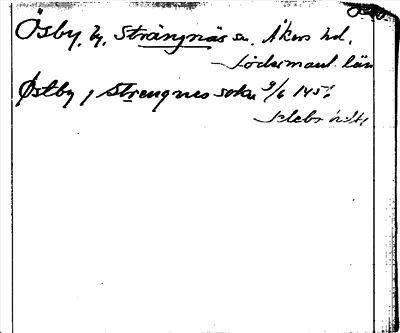 Ösby, by, Strängnäs sn. Åkers hd.
Södermanl. län
Østby j Strengnes sokn 9/6 145